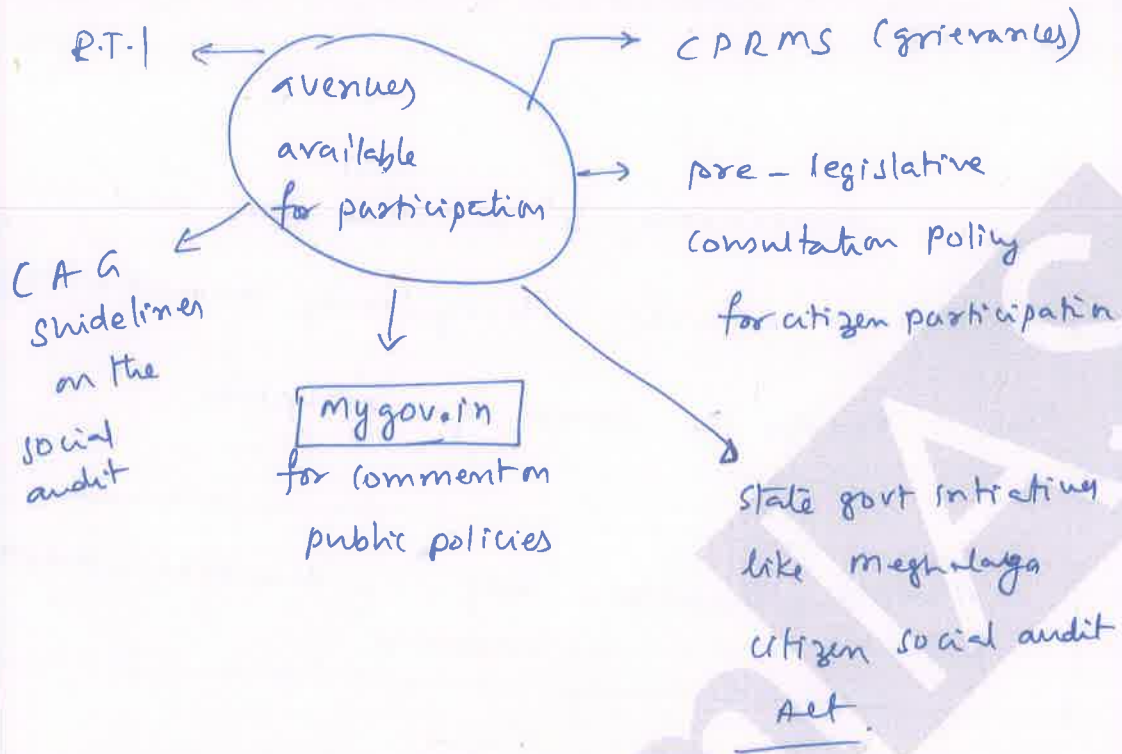 R.T.I
avenues
available
for participation
CPRMS (grievances)
pre-legislative
consultation policy
for citizen participation
CAG
guidelines
on the
social
audit
mygov.in
for comment on
public policies
state govt intiatives
like meghalaya
citizen social audit
Act.